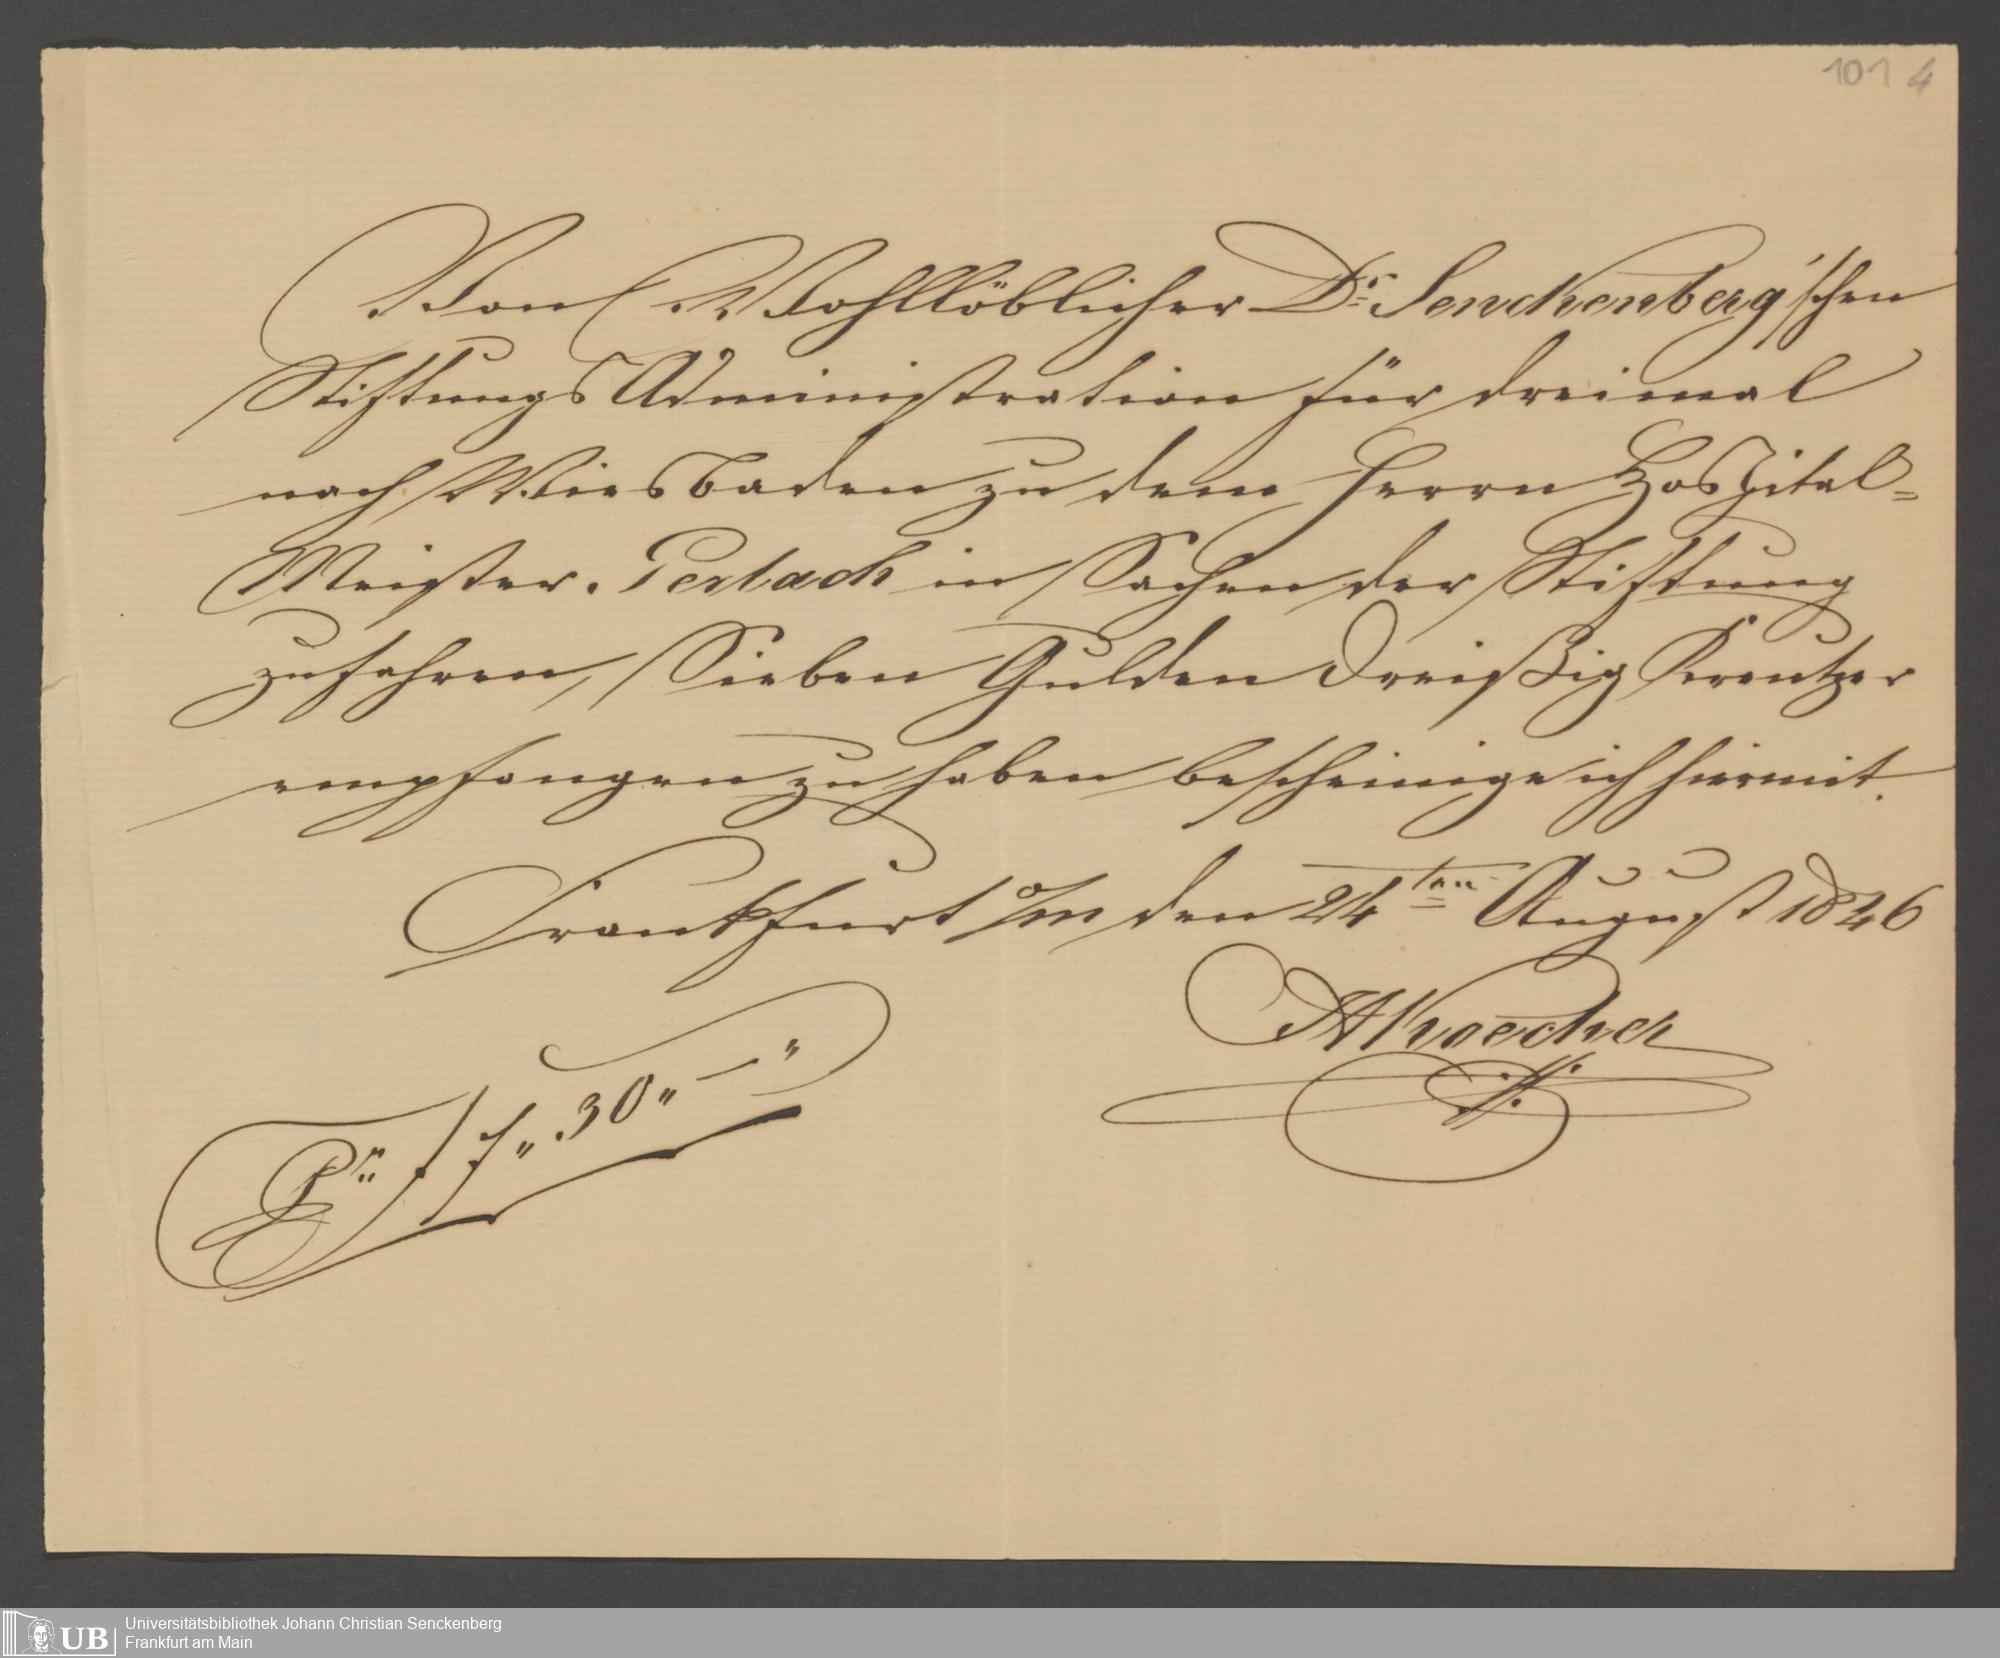 101 4
Von Wohllöblicher Dr. Senckenberg'schen
Stiftungs Administration für dreimal
nach Wiesbaden zu dem Herrn Hospital-
Meister. Perlach in Sachen der Stiftung
zu fahren, Sieben Gulden Dreißig Kreutzer
empfangen zu haben bescheinige ich hiermit.
Frankfurt a/m den 24ten August 1846
30
Universitätsbibliothek Johann Christian Senckenberg
UB
Frankfurt am Main